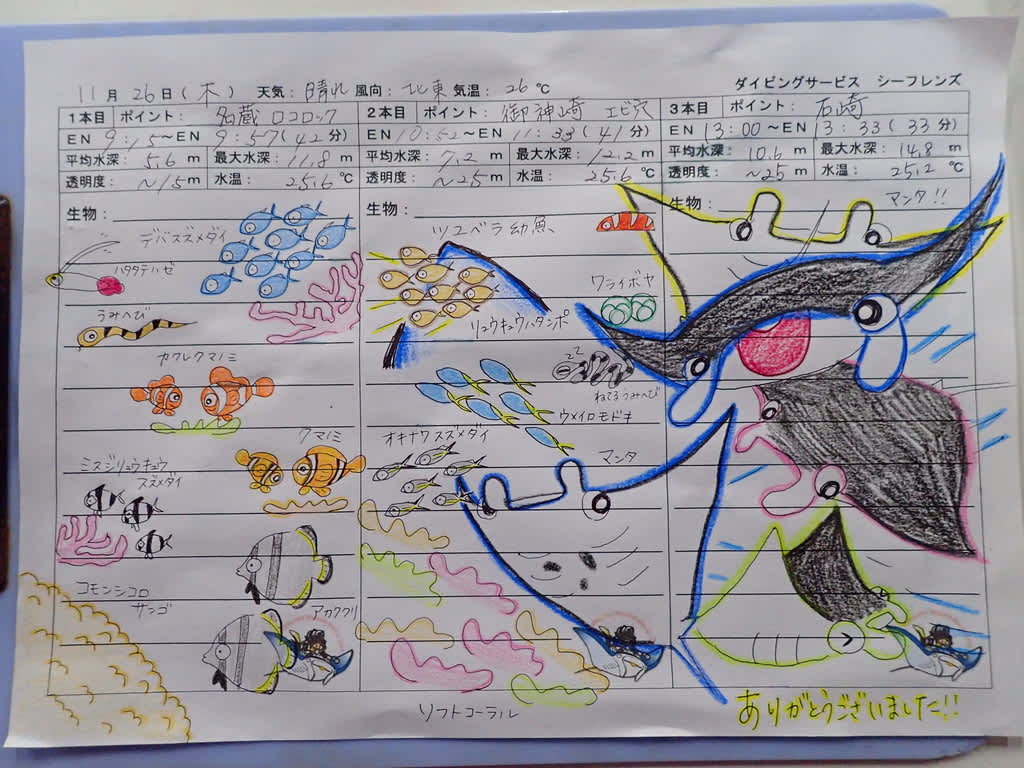 11月26日(木) 天気:晴れ 風向:北東 気温:26℃
ダイビングサービス シーフレンズ
1本目 ポイント: 名蔵 ロコロック
EN 9:15~EN 9:57(42分)
平均水深:5.6m 最大水深:11.8m
透明度:~15m 水温:25.6℃
生物:
デバスズメダイ
ハタタテハゼ
うみへび
カクレクマノミ
クマノミ
ミスジリュウキュウ
スズメダイ
コモンシコロ
サンゴ
アカククリ
2本目 ポイント: 御神崎 エビ穴
EN 10:52~EN 11:33(41分)
平均水深:7.2m 最大水深:12.2m
透明度:~25m 水温:25.6℃
生物:
ツユベラ幼魚
ワライボヤ
リュウキュウハタンポ
ZZ
ねてるうみへび
ウメイロモドキ
オキナワスズメダイ
マンタ
ソフトコーラル
3本目 ポイント: 石崎
EN 13:00~EN 13:33(33分)
平均水深:10.6m 最大水深:14.8m
透明度:~25m 水温:25.2℃
生物:
マンタ!!
ありがとうございました!!